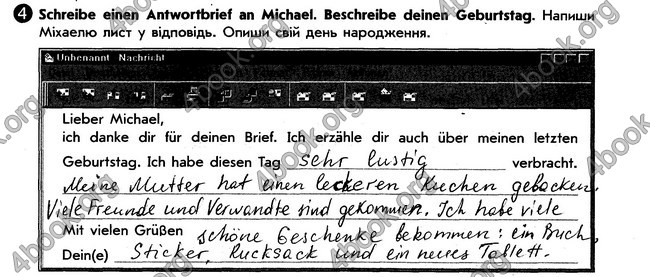 4 Schreibe einen Antwortbrief an Michael. Beschreibe deinen Geburtstag. Напиши
Міхаелю лист у відповідь. Опиши свій день народження.
Unbenannt Nachricht
Lieber Michael,
ich danke dir für deinen Brief. Ich erzähle dir auch über meinen letzten
Geburtstag. Ich habe diesen Tag sehr lustig verbracht.
Meine Mutter hat einen leckeren Kuchen gebacken.
Viele Freunde und Verwandte sind gekommen. Ich habe viele
Mit vielen Grüßen schöne Geschenke bekommen: ein Buch,
Dein(e) Sticker, Rucksack und ein neues Tablett.
4book.org